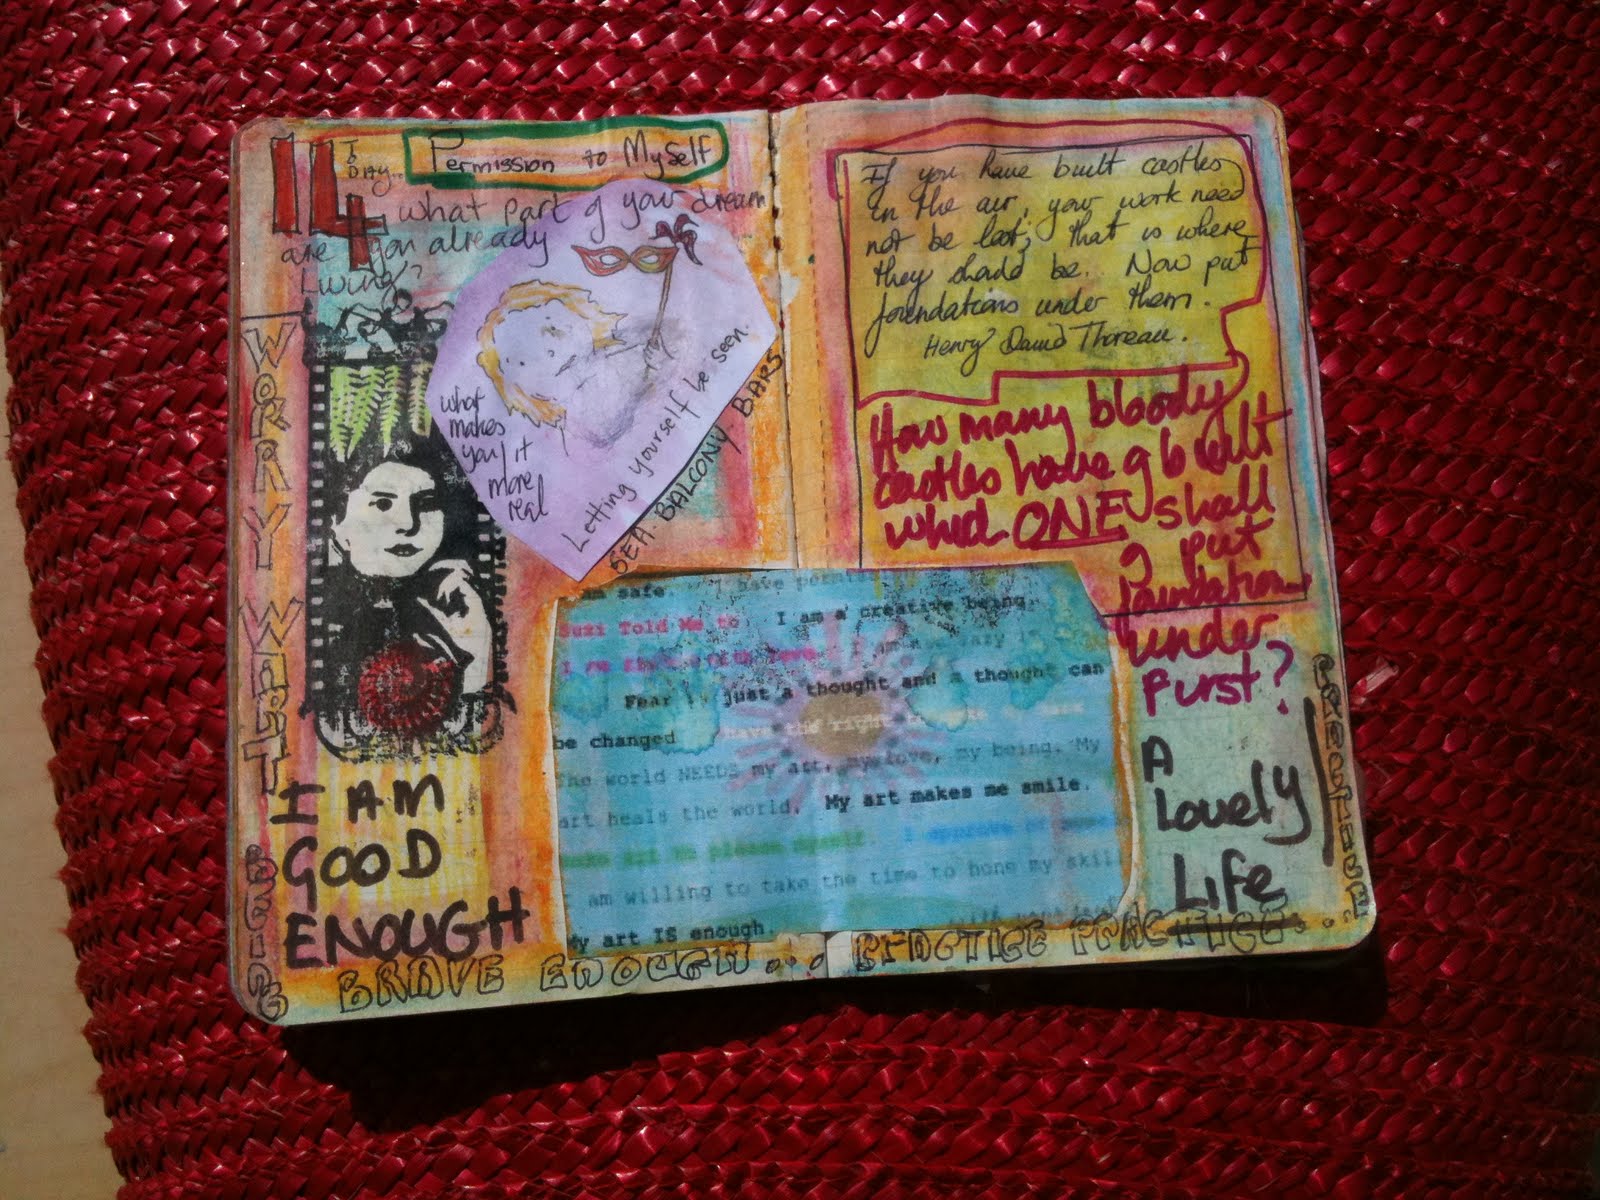 14
TO
DAY..
Permission to Myself
what part of your dream
are you already
living?
WORRY
what
makes
you/it
more
real
Letting yourself be seen.
SEA. BALCONY. BARS
I AM
GOOD
ENOUGH
BEING
BRAVE ENOUGH... PRACTICE PRACTICE..
If you have built castles
in the air, your work need
not be lost; that is where
they should be. Now put
foundations under them.
Henry David Thoreau.
How many bloody
castles have I built
which ONE shall
I put
foundations
under
first?
am safe. I have
Suzi Told Me to. I am a creative being.
I am
Fear is just a thought and a thought can
be changed have the right
The world NEEDS my art, my love, my being. My
art heals the world. My art makes me smile.
make art to please myself. I approve of
I am willing to take the time to hone my skill
My art IS enough.
A
Lovely
Life